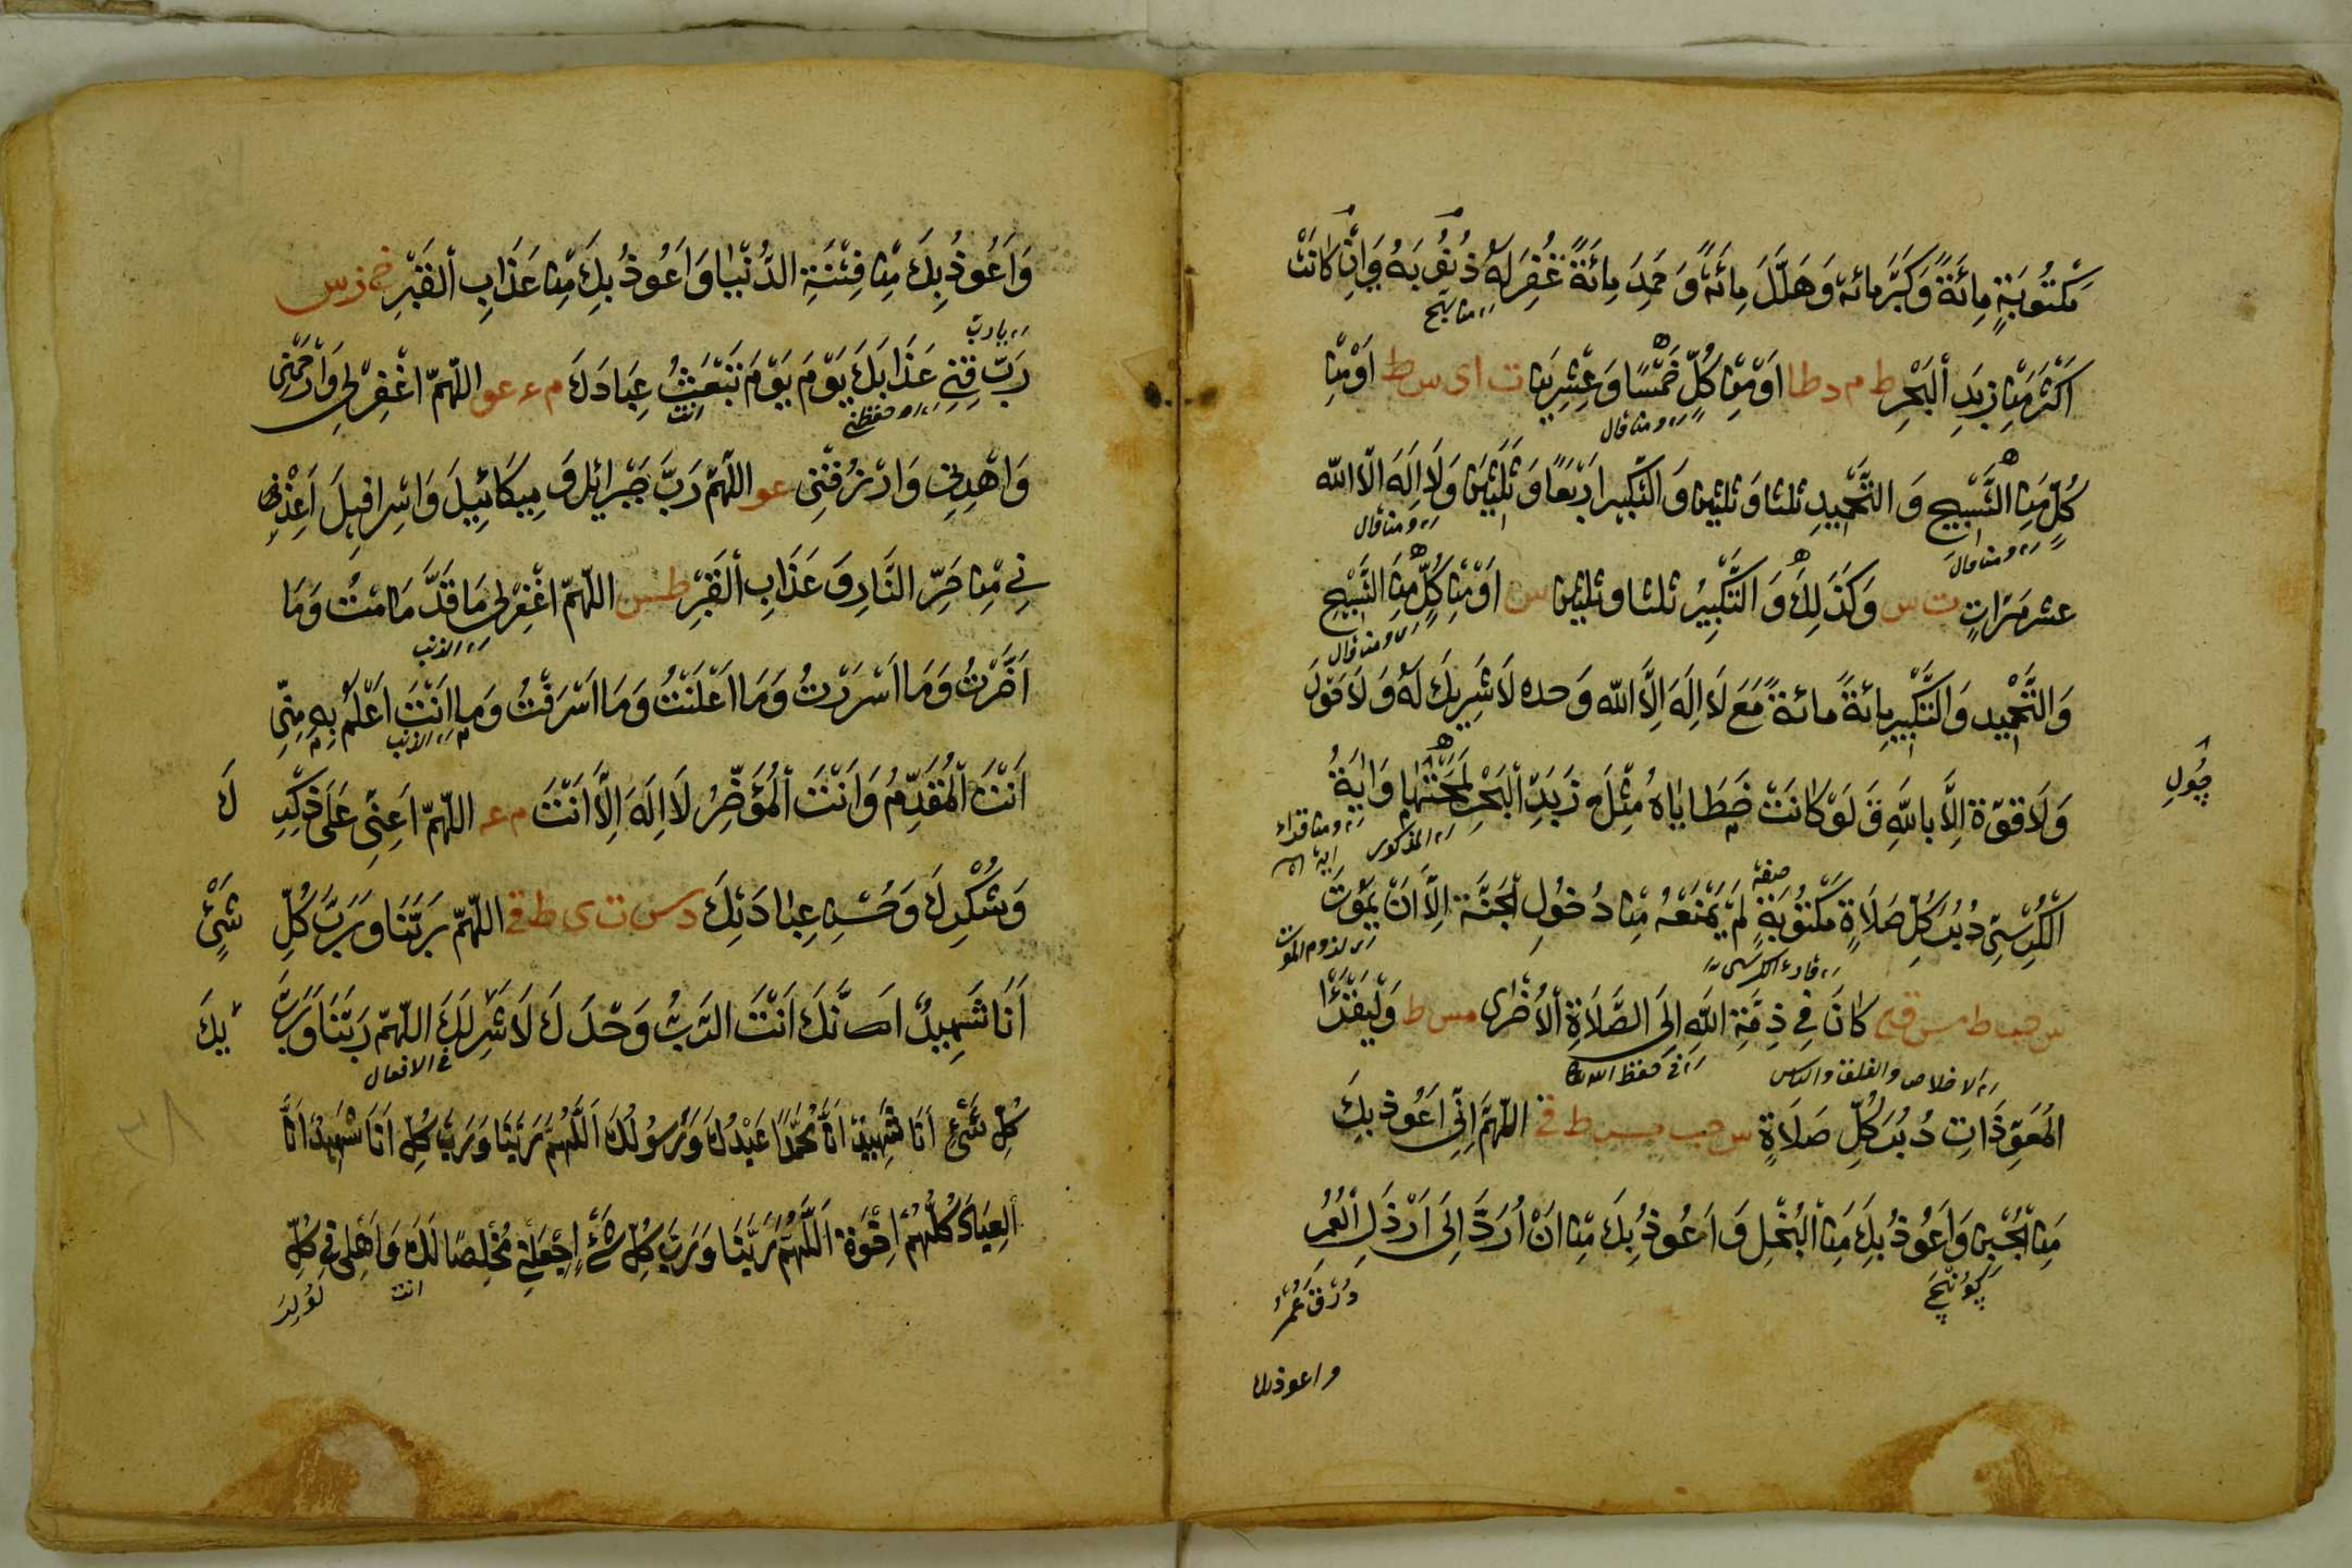 مَكْتُوبَةٍ مِائَةً وَكَبَّرَ مائة وَهَلَّلَ مِائَةً وَحَمِدَ مِائَةً غُفِرَ لَهُ ذُنُوبُهُ وَاِنْ كَانَتْ
اَكْثَرَ مِنْ زَبَدِ اَلْبَحْرِ ط م د طا اَوْ مِنْ كُلٍّ خَمْسًا وَعِشْرِينَ ت ای س ط اَوْ مِنْ
ومن قال
كُلٍّ مِنَ التَّسْبِيحِ وَ التَّحْمِيدِ ثلثا وَ ثلثين وَ التَّكْبِيرِ اَرْبَعًا وَ ثَلٰثِينَ وَلَا اِلٰهَ اِلَّا اللّٰه
ومن قال
ومن قال
عشر مَرَّاتٍ ت س وَكَذٰلِكَ وَ التَّكْبِيرُ ثلثا وثلثين س اَوْ مِنْ كُلٍّ مِنَ التَّسْبِيحِ
ومن قال
وَالتَّحْمِيدِ وَالتَّكْبِيرِ مِائَةً مائة مَعَ لَا اِلٰهَ اِلَّا اللّٰه وَحده لَا شَرِيكَ لَهُ وَ لَا حَوْلَ
وَلَا قُوَّةَ اِلَّا بِاللّٰهِ وَ لَوْ كَانَتْ خَطَايَاهُ مِثْلَ زَبَدِ الْبَحْرِ لَمَحَتْهَا وَ اٰيَةُ
المذكور
الْكُرْسِيِّ دُبُرَ كُلِّ صَلَاةٍ مَكْتُوبَةٍ لَمْ يَمْنَعْهُ مِنْ دُخُولِ الْجَنَّةِ اِلَّا اَنْ يَمُوتَ
صفة
س حب ط مس قی كَانَ فِي ذِمَّةِ اللّٰهِ اِلَى الصَّلَاةِ الْاُخْرٰى مس ط وَلْيَقْرَأْ
فی حفظ الله
الاخلاص والفلق والناس
الْمُعَوِّذَاتِ دُبُرَ كُلِّ صَلَاةٍ س حب مس ط ق اللّٰهُمَّ اِنِّي اَعُوذُ بِكَ
مِنَ الْجُبْنِ وَاَعُوذُ بِكَ مِنَ الْبُخْلِ وَ اَعُوذُ بِكَ مِنْ اَنْ اُرَدَّ اِلٰى اَرْذَلِ الْعُمُرِ
واعوذبك
وَاَعُوذُ بِكَ مِنْ فِتْنَةِ الدُّنْيَا وَاَعُوذُ بِكَ مِنْ عَذَابِ الْقَبْرِ خ ز س
یارب
رَبِّ قِنِي عَذَابَكَ يَوْمَ يَوْمَ تَبْعَثُ عِبَادَكَ م ء عو اللّٰهُمَّ اغْفِرْ لِي وَارْحَمْنِي
انت
وَاهْدِنِي وَارْزُقْنِي عو اللّٰهُمَّ رَبَّ جَبْرَائِيلَ وَ مِيكَائِيلَ وَاِسْرَافِيلَ اَعِذْنِي
نِي مِنْ حَرِّ النَّارِ وَ عَذَابِ الْقَبْرِ طس س اللّٰهُمَّ اغْفِرْ لِي مَا قَدَّ مَا مْتُ وَمَا
الذنب
اَخَّرْتُ وَمَا اَسْرَرْتُ وَمَا اَعْلَنْتُ وَمَا اَسْرَفْتُ وَمَا اَنْتَ اَعْلَمُ بِهِ مِنِّي
الذنب
اَنْتَ الْمُقَدِّمُ وَاَنْتَ الْمُؤَخِّرُ لَا اِلٰهَ اِلَّا اَنْتَ م عه اللّٰهُمَّ اَعِنِّي عَلٰى ذِكْرِ كَ
وَشُكْرِكَ وَحُسْنِ عِبَادَتِكَ د س ت ی ط ق اللّٰهُمَّ رَبَّنَا وَرَبَّ كُلِّ شَيْءٍ
اَنَا شَهِيدٌ اَنَّكَ اَنْتَ الرَّبُّ وَحْدَكَ لَا شَرِيكَ لَكَ اللّٰهُمَّ رَبَّنَا وَرَبَّ
فی الافعال
كُلِّ شَيْءٍ اَنَا شَهِيدٌ اَنَّ مُحَمَّدًا عَبْدُكَ وَرَسُولُكَ اَللّٰهُمَّ رَبَّنَا وَرَبَّ كُلِّ اَنَا شَهِيدٌ اَنَّ
الْعِبَادَ كُلُّهُمْ اِخْوَةٌ اَللّٰهُمَّ رَبَّنَا وَرَبَّ كُلِّ شَيْءٍ اِجْعَلْنِي مُخْلِصًا لَكَ وَاَهْلِي فِي كُلِّ
انت